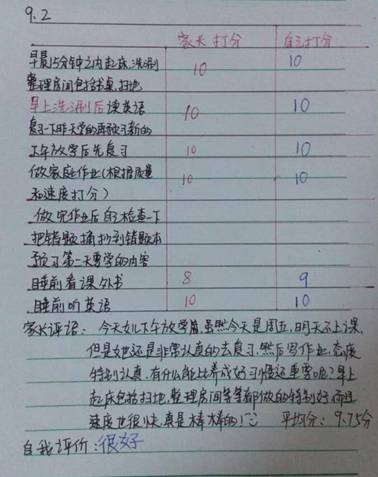 9.2
家长打分 自己打分
早晨15分钟之内起床.洗漱 10 10
整理房间包括书桌.扫地
早上洗漱后读英语 10 10
复习一下昨天学的再预习新的
下午放学后先复习 10 10
做家庭作业(根据质量 10 10
和速度打分)
做完作业后自己检查一下
把错题摘抄到错题本
预习第一天要学的内容
睡前看课外书 8 9
睡前听英语 10 10
家长评语:今天女儿下午放学篇,虽然今天是周五,明天不上课,
但是她还是非常认真的去复习,然后写作业,态度
特别认真,有什么能比养成好习惯还重要呢?早上
起床包括扫地,整理房间等等都做的特别好,而且
速度也很快,真是棒棒的! 平均分:9.75分
自我评价:很好